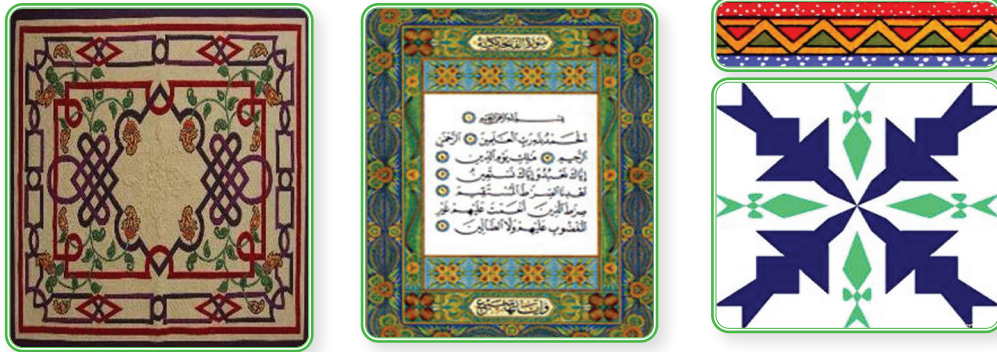 سورة الفاتحة مكية
بسم الله الرحمن الرحيم
الحمد لله رب العلمين الرحمن
الرحيم ملك يوم الدين
إياك نعبد وإياك نستعين
اهدنا الصراط المستقيم
صراط الذين أنعمت عليهم غير
المغضوب عليهم ولا الضالين
وآياتها سبع